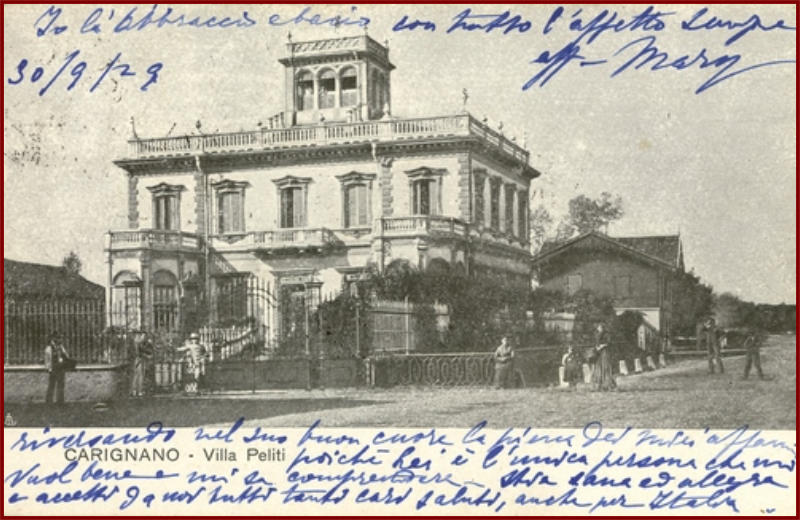 Io La abbraccio e bacio con tutto l'affetto Sempre
30/9/29
aff- Mary
riversando nel suo buon cuore la piena dei miei affanni
CARIGNANO - Villa Peliti
poichè Lei è l'unica persona che mi
vuol bene e mi sa comprendere. Stia sana ed allegra
e accetti da noi tutti tanti cari saluti, anche per Italia